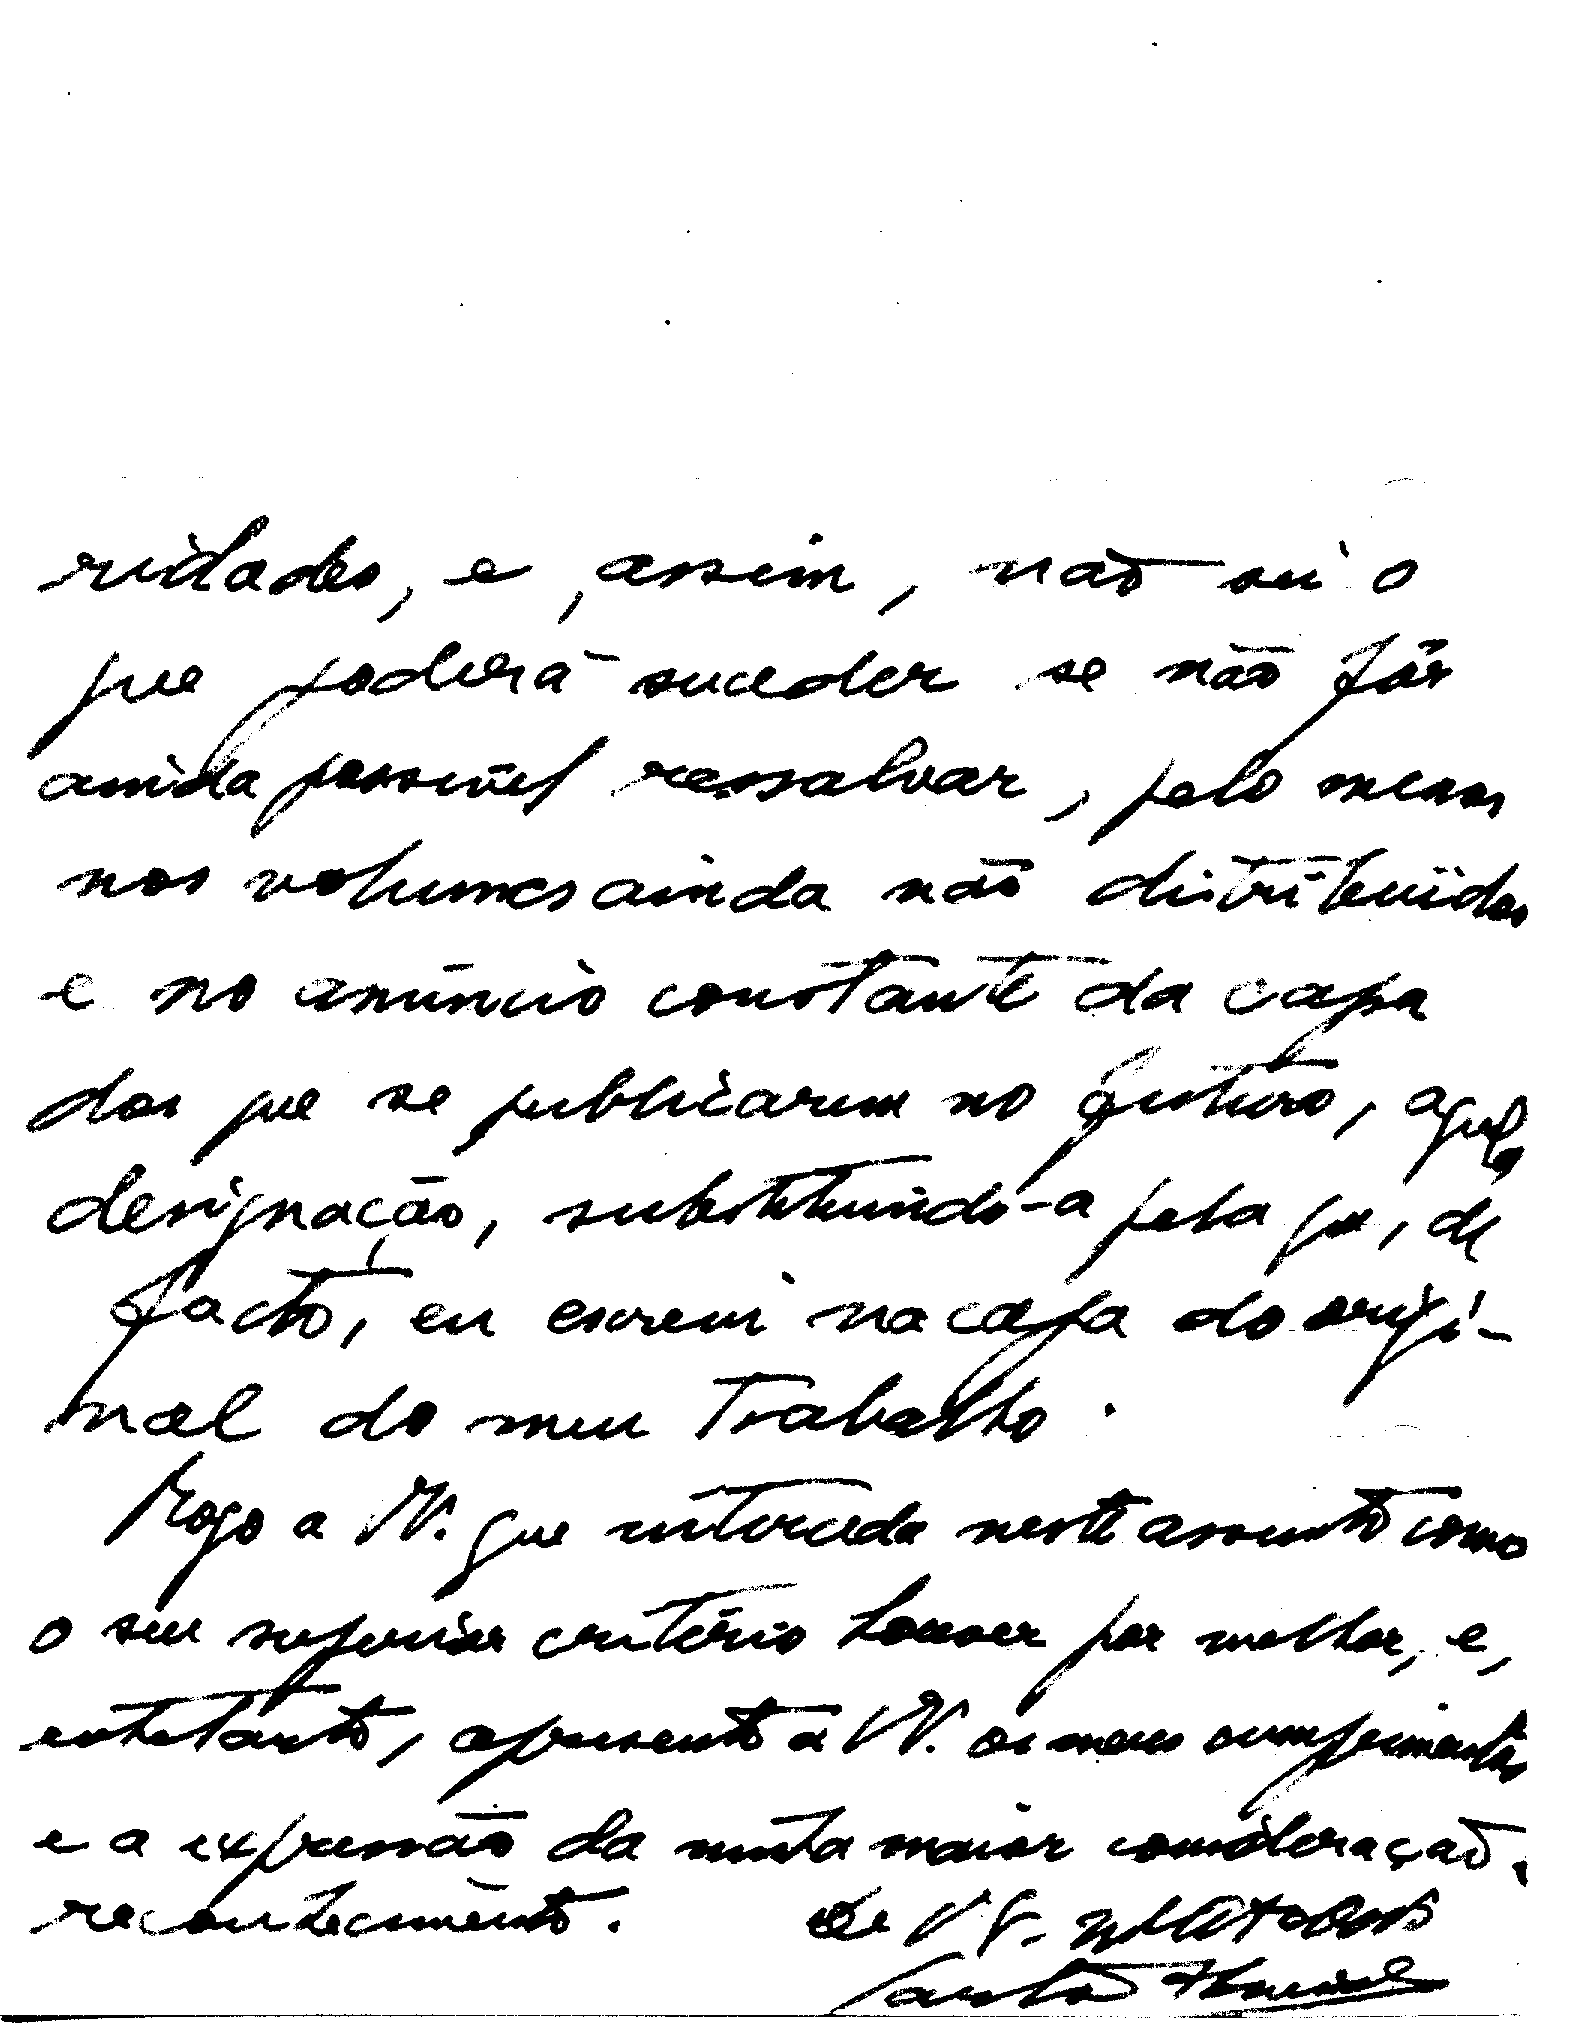 ridades, e, assim, não sei o
que poderá suceder se não fôr
ainda possível ressalvar, pelo menos
nos volumes ainda não distribuïdos
e no anúncio constante da capa
dos que se publicarem no futuro, aquela
designação, substituindo-a pela que, de
facto, eu escrevi na capa do origi-
nal do meu trabalho.
Rogo a V. que interceda neste assunto como
o seu superior critério houver por melhor, e,
entretanto, apresento a V. os meus cumprimentos
e a expressão da minha maior consideração.
reconhecimento. De V.